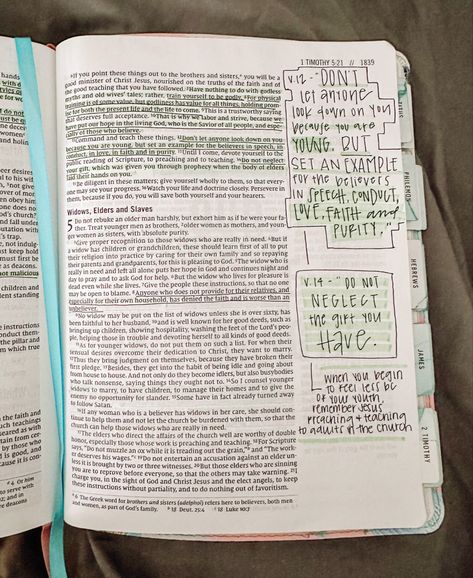 1 TIMOTHY 5:21 // 1839
⁶If you point these things out to the brothers and sisters,ᵃ you will be a
good minister of Christ Jesus, nourished on the truths of the faith and of
the good teaching that you have followed. ⁷Have nothing to do with godless
myths and old wives' tales; rather, train yourself to be godly. ⁸For physical
training is of some value, but godliness has value for all things, holding prom-
ise for both the present life and the life to come. ⁹This is a trustworthy saying
that deserves full acceptance. ¹⁰That is why we labor and strive, because we
have put our hope in the living God, who is the Savior of all people, and espe-
cially of those who believe.
¹¹Command and teach these things. ¹²Don't let anyone look down on you
because you are young, but set an example for the believers in speech, in
conduct, in love, in faith and in purity. ¹³Until I come, devote yourself to the
public reading of Scripture, to preaching and to teaching. ¹⁴Do not neglect
your gift, which was given you through prophecy when the body of elders
laid their hands on you.
¹⁵Be diligent in these matters; give yourself wholly to them, so that every-
one may see your progress. ¹⁶Watch your life and doctrine closely. Persevere in
them, because if you do, you will save both yourself and your hearers.
Widows, Elders and Slaves
5 Do not rebuke an older man harshly, but exhort him as if he were your fa-
ther. Treat younger men as brothers, ²older women as mothers, and young-
er women as sisters, with absolute purity.
³Give proper recognition to those widows who are really in need. ⁴But if
a widow has children or grandchildren, these should learn first of all to put
their religion into practice by caring for their own family and so repaying
their parents and grandparents, for this is pleasing to God. ⁵The widow who is
really in need and left all alone puts her hope in God and continues night and
day to pray and to ask God for help. ⁶But the widow who lives for pleasure is
dead even while she lives. ⁷Give the people these instructions, so that no one
may be open to blame. ⁸Anyone who does not provide for their relatives, and
especially for their own household, has denied the faith and is worse than an
unbeliever.
⁹No widow may be put on the list of widows unless she is over sixty, has
been faithful to her husband, ¹⁰and is well known for her good deeds, such as
bringing up children, showing hospitality, washing the feet of the Lord's peo-
ple, helping those in trouble and devoting herself to all kinds of good deeds.
¹¹As for younger widows, do not put them on such a list. For when their
sensual desires overcome their dedication to Christ, they want to marry.
¹²Thus they bring judgment on themselves, because they have broken their
first pledge. ¹³Besides, they get into the habit of being idle and going about
from house to house. And not only do they become idlers, but also busybodies
who talk nonsense, saying things they ought not to. ¹⁴So I counsel younger
widows to marry, to have children, to manage their homes and to give the
enemy no opportunity for slander. ¹⁵Some have in fact already turned away
to follow Satan.
¹⁶If any woman who is a believer has widows in her care, she should con-
tinue to help them and not let the church be burdened with them, so that the
church can help those widows who are really in need.
¹⁷The elders who direct the affairs of the church well are worthy of double
honor, especially those whose work is preaching and teaching. ¹⁸For Scripture
says, "Do not muzzle an ox while it is treading out the grain,"ᵇ and "The work-
er deserves his wages."ᶜ ¹⁹Do not entertain an accusation against an elder un-
less it is brought by two or three witnesses. ²⁰But those elders who are sinning
you are to reprove before everyone, so that the others may take warning. ²¹I
charge you, in the sight of God and Christ Jesus and the elect angels, to keep
these instructions without partiality, and to do nothing out of favoritism.
ᵃ 6 The Greek word for brothers and sisters (adelphoi) refers here to believers, both men
and women, as part of God's family. ᵇ 18 Deut. 25:4 ᶜ 18 Luke 10:7
V.12 - "DON'T
let anyone
look down on you
because you are
YOUNG, BUT
SET AN EXAMPLE
FOR the believers
IN SPEECH, CONDUCT,
LOVE, FAITH and
PURITY,"
V.14 - "DO NOT
NEGLECT
the gift YOU
HAVE.
WHEN YOU begin
to feel less bc
of your youth,
remember Jesus
preaching & teaching
to adults at the church
PHILEMON
HEBREWS
JAMES
2 TIMOTHY